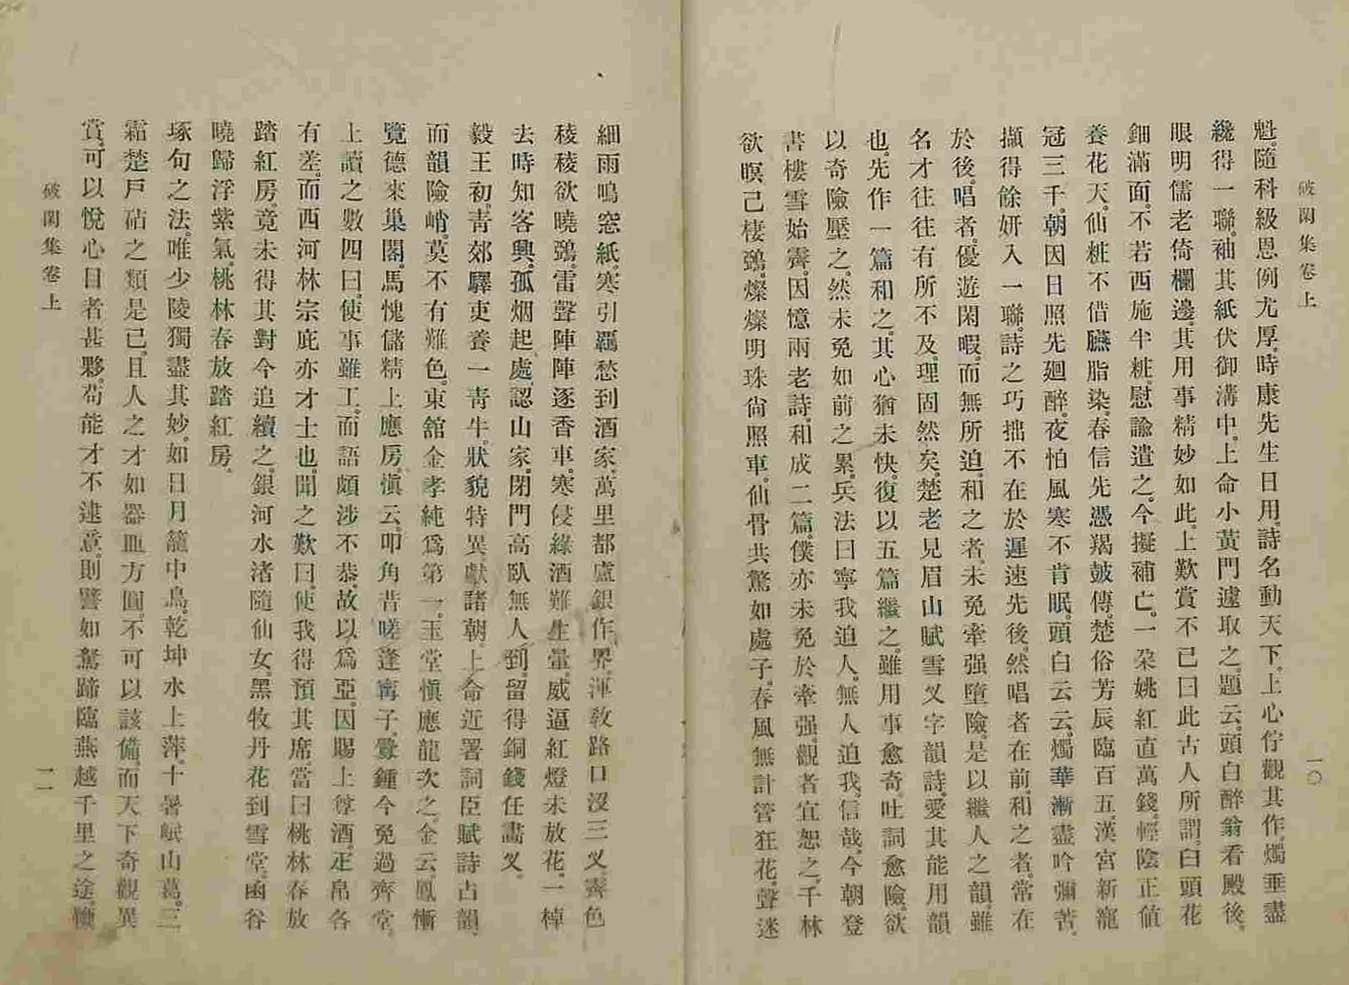 破閑集卷上
一〇
魁。隨科級恩例尤厚。時康先生日用。詩名動天下。上心佇觀其作。燭垂盡
纔得一聯。袖其紙伏御溝中。上命小黃門遽取之。題云。頭白醉翁看殿後。
眼明儒老倚欄邊。其用事精妙如此。上歎賞不已曰此古人所謂。臼頭花
鈿滿面。不若西施半粧。慰諭遣之。今擬補亡。一朶姚紅直萬錢。輕陰正値
養花天。仙粧不借臙脂染。春信先憑羯皷傳。楚俗芳辰臨百五。漢宮新寵
冠三千。朝因日照先廻醉。夜怕風寒不肯眠。頭白云云。燭華漸盡吟彌苦。
擷得餘妍入一聯。詩之巧拙不在於遲速先後。然唱者在前。和之者。常在
於後。唱者。優遊閑暇。而無所迫。和之者。未免牽强墮險。是以繼人之韻。雖
名才往往有所不及。理固然矣。楚老見眉山賦雪叉字韻詩。愛其能用韻
也。先作一篇和之。其心猶未快。復以五篇繼之。雖用事愈奇。吐詞愈險。欲
以奇險壓之。然未免如前之累。兵法曰寧我迫人。無人迫我。信哉。今朝登
書樓雪始霽。因憶兩老詩。和成二篇。僕亦未免於牽强。觀者宜恕之。千林
欲暝已棲鵶。燦燦明珠尙照車。仙骨共驚如處子。春風無計管狂花。聲迷
細雨鳴窓紙。寒引羈愁到酒家。萬里都盧銀作界。渾敎路口沒三叉。霽色
稜稜欲曉鵶。雷聲陣陣逐香車。寒侵綠酒難生暈。威逼紅燈未放花。一棹
去時知客興。孤烟起處認山家。閉門高臥無人到。留得銅錢任畵叉。
毅王初。靑郊驛吏養一靑牛。狀貌特異獻諸朝。上命近署詞臣賦詩占韻。
而韻險峭。莫不有難色。東舘金孝純爲第一。玉堂愼應龍次之。金云鳳慚
覽德來巢閣。馬愧儲精上應房。愼云。叩角昔嗟逢甯子。釁鍾今免過齊堂。
上讀之數四曰。使事雖工。而語頗涉不恭。故以爲亞。因賜上尊酒。疋帛各
有差。而西河林宗庇亦才士也。聞之歎曰。使我得預其席。當曰桃林春放
踏紅房。竟未得其對今追續之。銀河水渚隨仙女。黑牧丹花到雪堂。函谷
曉歸浮紫氣。桃林春放踏紅房。
琢句之法。唯少陵獨盡其妙。如日月籠中鳥。乾坤水上萍。十暑岷山葛。三
霜楚戶砧之類是已。且人之才如器皿方圓。不可以該備。而天下奇觀異
賞。可以悅心目者甚夥。苟能才不逮意。則譬如駑蹄臨燕越千里之途。
破閑集卷上
一一